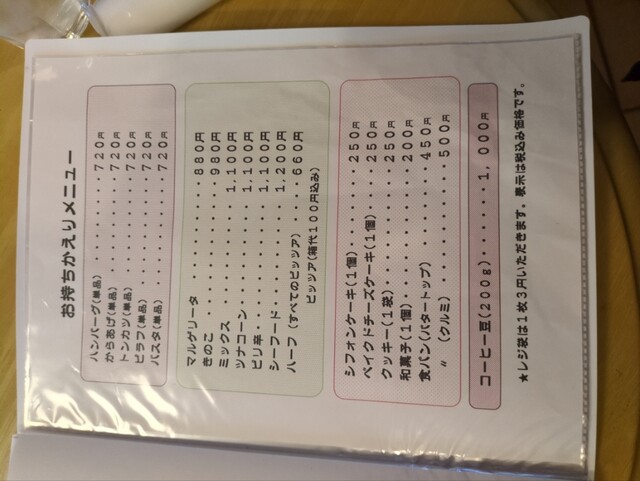 お持ちかえりメニュー
ハンバーグ(単品)・・・・・・・・720円
からあげ(単品)・・・・・・・・720円
トンカツ(単品)・・・・・・・・720円
ピラフ(単品)・・・・・・・・・720円
パスタ(単品)・・・・・・・・・720円
マルゲリータ・・・・・・・・・・880円
きのこ・・・・・・・・・・・・980円
ミックス・・・・・・・・・・1,100円
ツナコーン・・・・・・・・・1,100円
ピリ辛・・・・・・・・・・・1,100円
シーフード・・・・・・・・・1,200円
ハーフ(すべてのピッツア)・・・・660円
ピッツア(箱代100円込み)
シフォンケーキ(1個)・・・・・・・250円
ベイクドチーズケーキ(1個)・・・・250円
クッキー(1袋)・・・・・・・・・250円
和菓子(1個)・・・・・・・・・・200円
食パン(バタートップ)・・・・・・450円
〃(クルミ)・・・・・・・・・500円
コーヒー豆(200g)・・・・・・1,000円
★レジ袋は1枚3円いただきます。表示は税込み価格です。